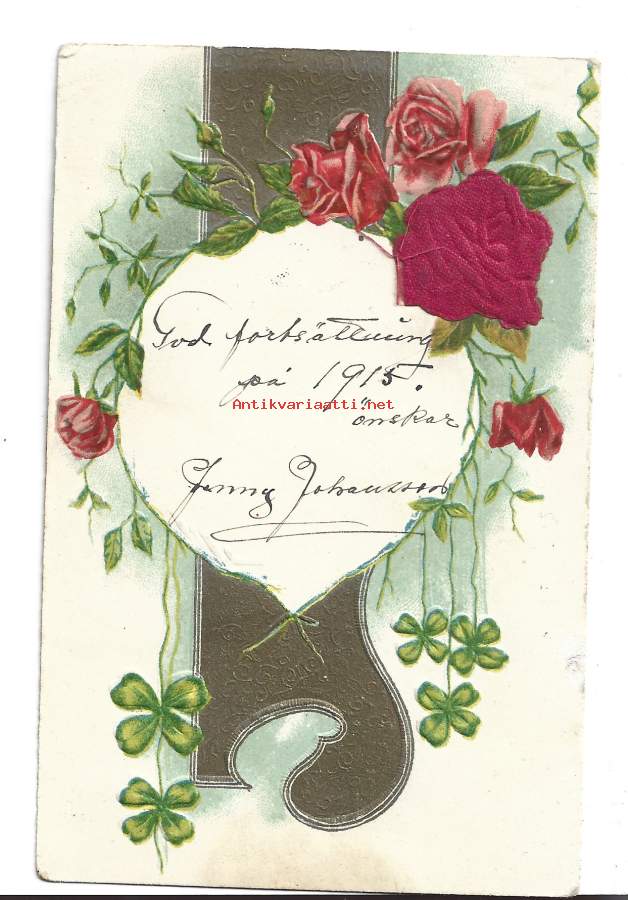 God fortsättning
på 1915.
Antikvariaatti.net
önskar
Jenny Johansson